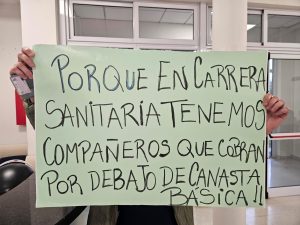 PORQUE EN CARRERA
SANITARÍA TENEMOS
COMPAÑEROS QUE COBRAN
POR DEBAJO DE CANASTA
BÁSICA!!